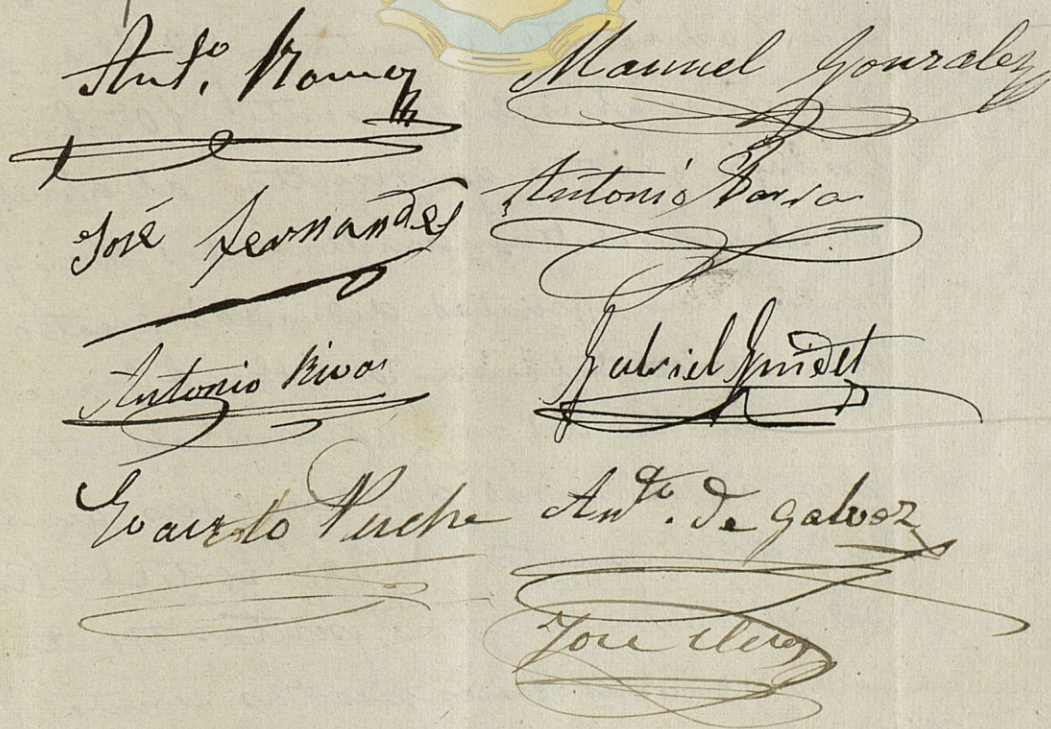 Antº. Manuel Gonzalez
José Fernandes Antonio
Antonio Rivas Gabriel
Evaristo Puche Antº. de Galvez
José